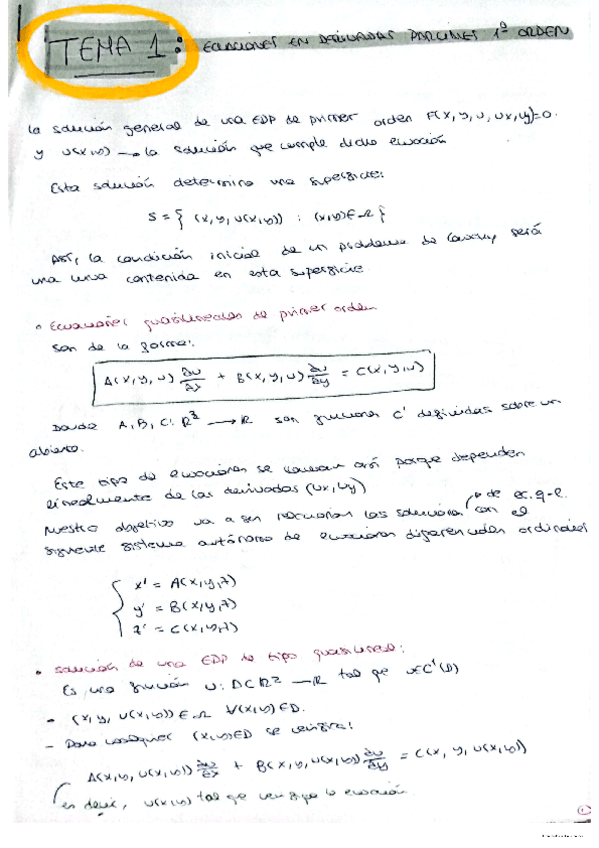 TEMA 1: ECUACIONES EN DERIVADAS PARCIALES 1º ORDEN
La solución general de una EDP de primer orden F(x, y, u, ux, uy)=0.
y u(x,y) → la solución que cumple dicha ecuación
Esta solución determina una superficie:
S = { (x, y, u(x,y)) : (x,y) ∈ Ω }
Así, la condición inicial de un problema de Cauchy será
una curva contenida en esta superficie
• Ecuaciones quasilineales de primer orden
Son de la forma:
A(x, y, u) ∂u/∂x + B(x, y, u) ∂u/∂y = C(x, y, u)
Donde A, B, C: R³ → R son funciones C¹ definidas sobre un
abierto.
Este tipo de ecuaciones se llaman así porque dependen
linealmente de las derivadas (ux, uy)
de ec. q-l.
Nuestro objetivo va a ser relacionar las soluciones con el
siguiente sistema autónomo de ecuaciones diferenciales ordinarias
x' = A(x, y, z)
y' = B(x, y, z)
z' = C(x, y, z)
• Solución de una EDP de tipo quasilineal:
Es una función u: D⊂R² → R tal que u∈C¹(D)
- (x, y, u(x,y)) ∈ Ω ∀(x,y)∈D.
- Para cualquier (x,y)∈D se verifica:
A(x,y, u(x,y)) ∂u/∂x + B(x, y, u(x,y)) ∂u/∂y = C(x, y, u(x,y))
es decir, u(x,y) tal que verifique la ecuación.
1